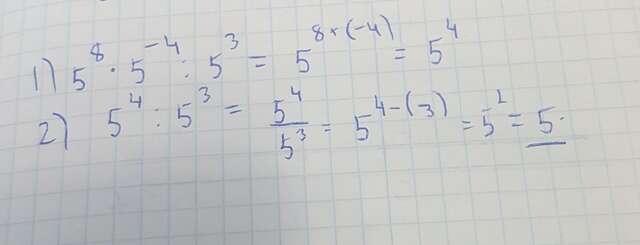 1) 5^8 · 5^{-4} : 5^3 = 5^{8+(-4)} = 5^4
2) 5^4 : 5^3 = \frac{5^4}{5^3} = 5^{4-(3)} = 5^1 = 5.